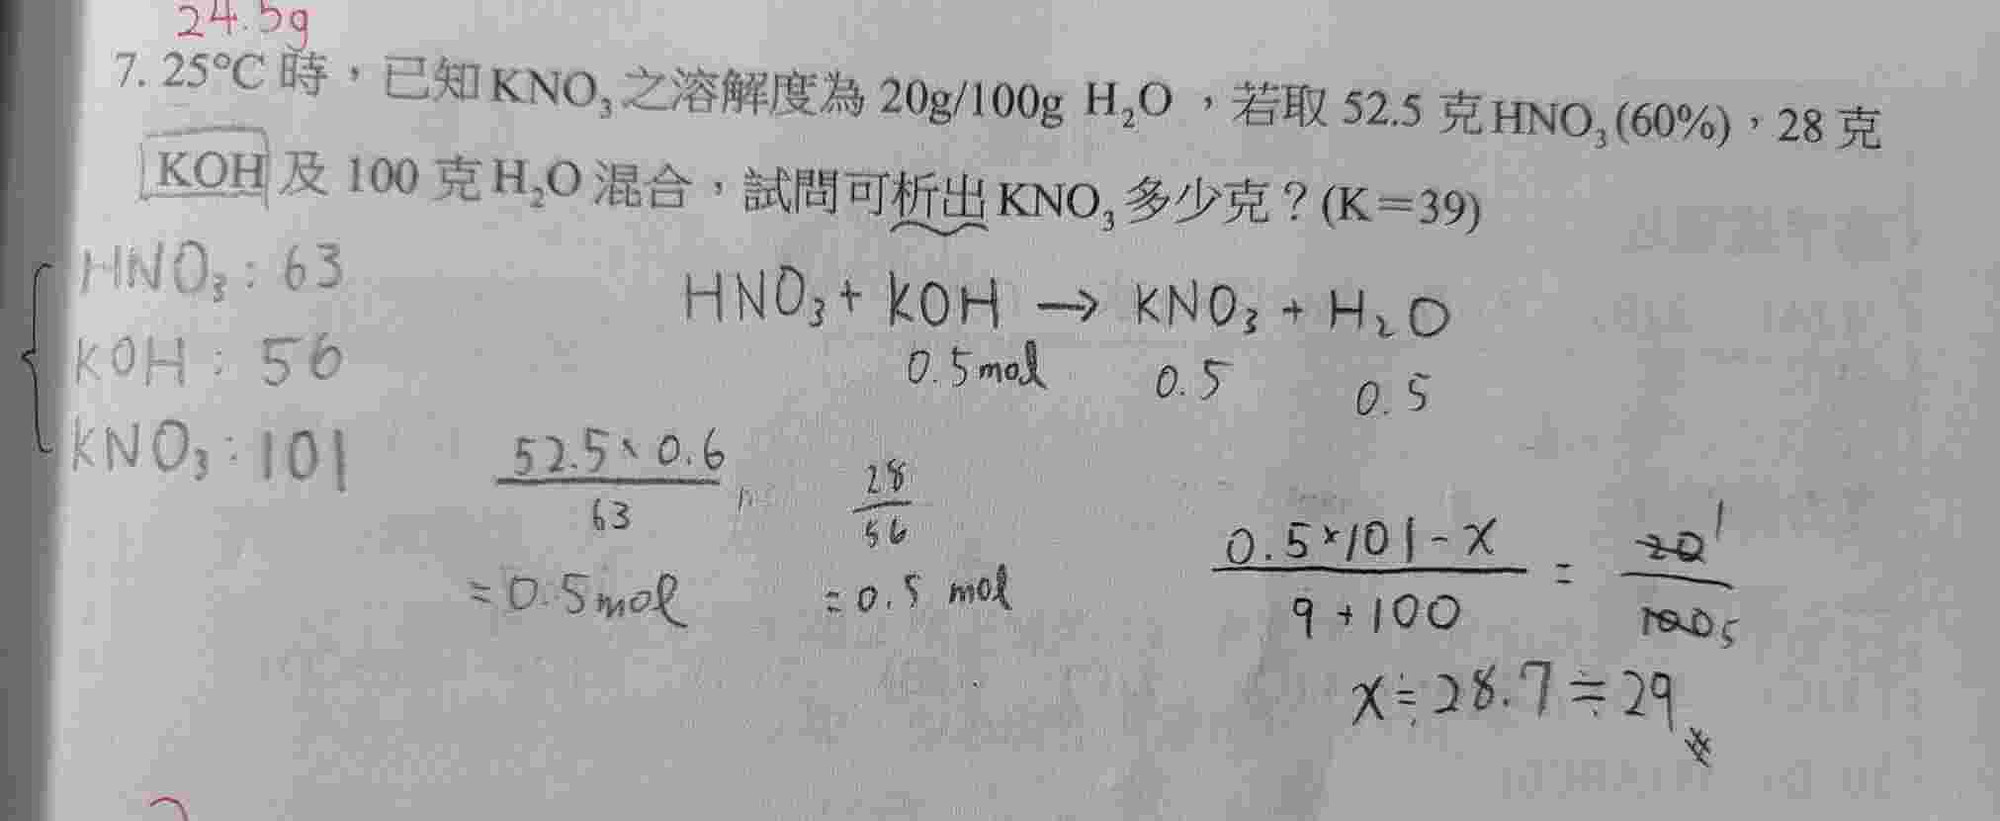 24.5g
7. 25°C 時，已知KNO₃之溶解度為 20g/100g H₂O，若取 52.5 克HNO₃(60%)，28 克
KOH 及 100 克H₂O混合，試問可析出KNO₃多少克？(K＝39)
HNO₃ : 63
KOH : 56
KNO₃ : 101
HNO₃ + KOH → KNO₃ + H₂O
0.5mol 0.5 0.5
52.5×0.6
63
= 0.5mol
28
56
= 0.5 mol
0.5×101-x
9+100
=
20 1
100 5
x≒28.7≒29#